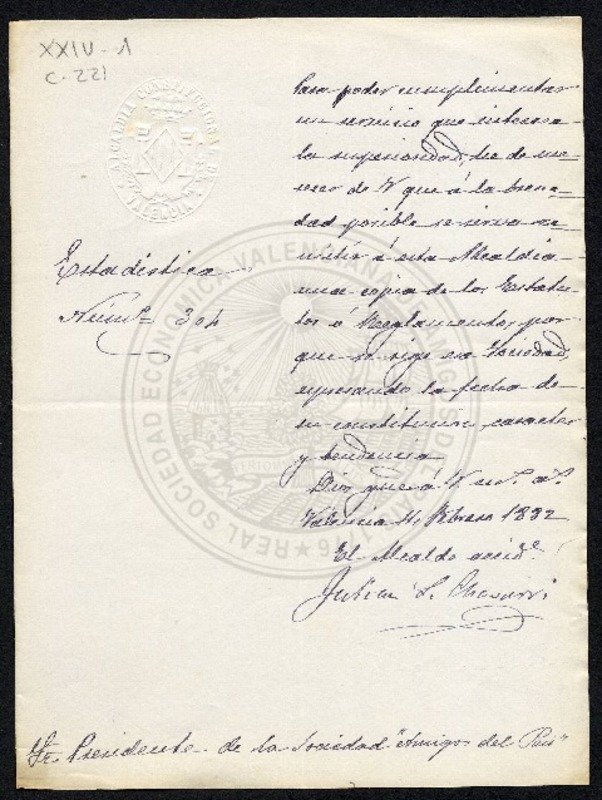 XXIV-1
C-221
ALCALDIA CONSTITUCIONAL DE VALENCIA
Estadistica
Núm.º 304
Para poder cumplimentar
un servicio que interesa
la superioridad, he de me-
recer de V que á la breve-
dad posible se sirva re-
mitir á esta Alcaldia
una copia de los Estatu-
tos ó Reglamentos, por
que se rige esa Sociedad,
espresando la fecha de
su constitucion, caracter
y tendencia
Dios gue á V m.s a.s
Valencia 11, Febrero 1882
El Alcalde accid.e
Julian L. Chavarri
Sr. Presidente de la Sociedad "Amigos del Pais"
REAL SOCIEDAD ECONOMICA VALENCIANA DE AMIGOS DEL PAIS 1776